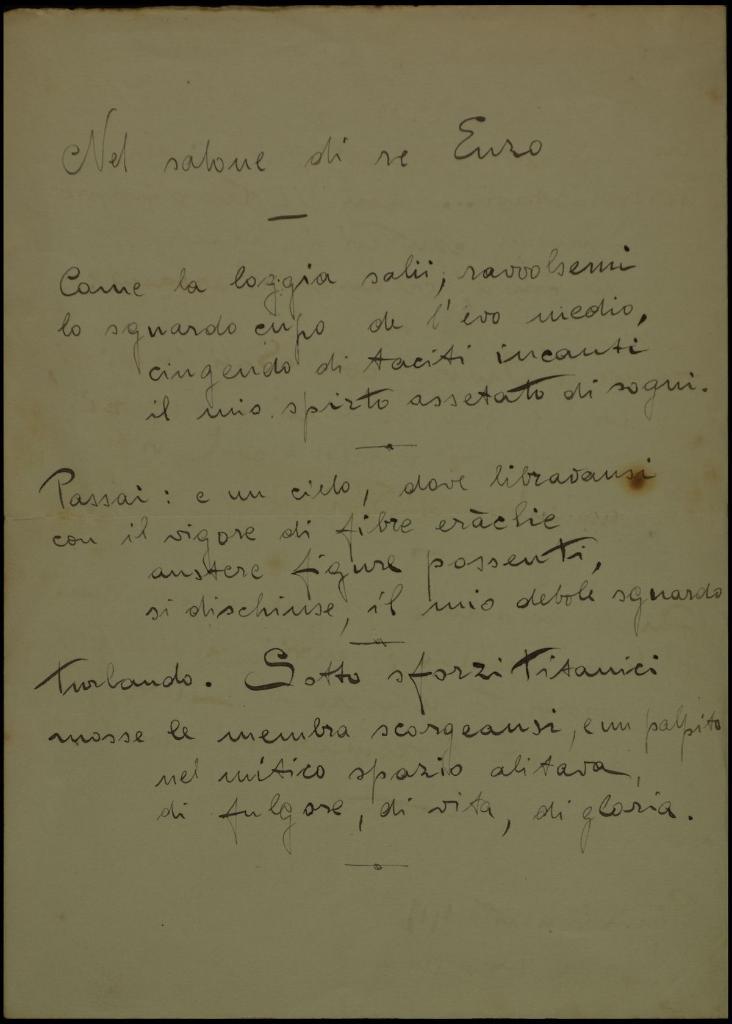 Nel salone di re Enzo
Come la loggia salii, ravvolsemi
lo sguardo cupo de l'evo medio,
cingendo di taciti incanti
il mio spirto assetato di sogni.
Passai: e un cielo, dove libravansi
con il vigore di fibre eràclie
austere figure possenti,
si dischiuse, il mio debole sguardo
turbando. Sotto sforzi titanici
mosse le membra scorgeansi, e un palpito
nel mitico spazio alitava,
di fulgore, di vita, di gloria.